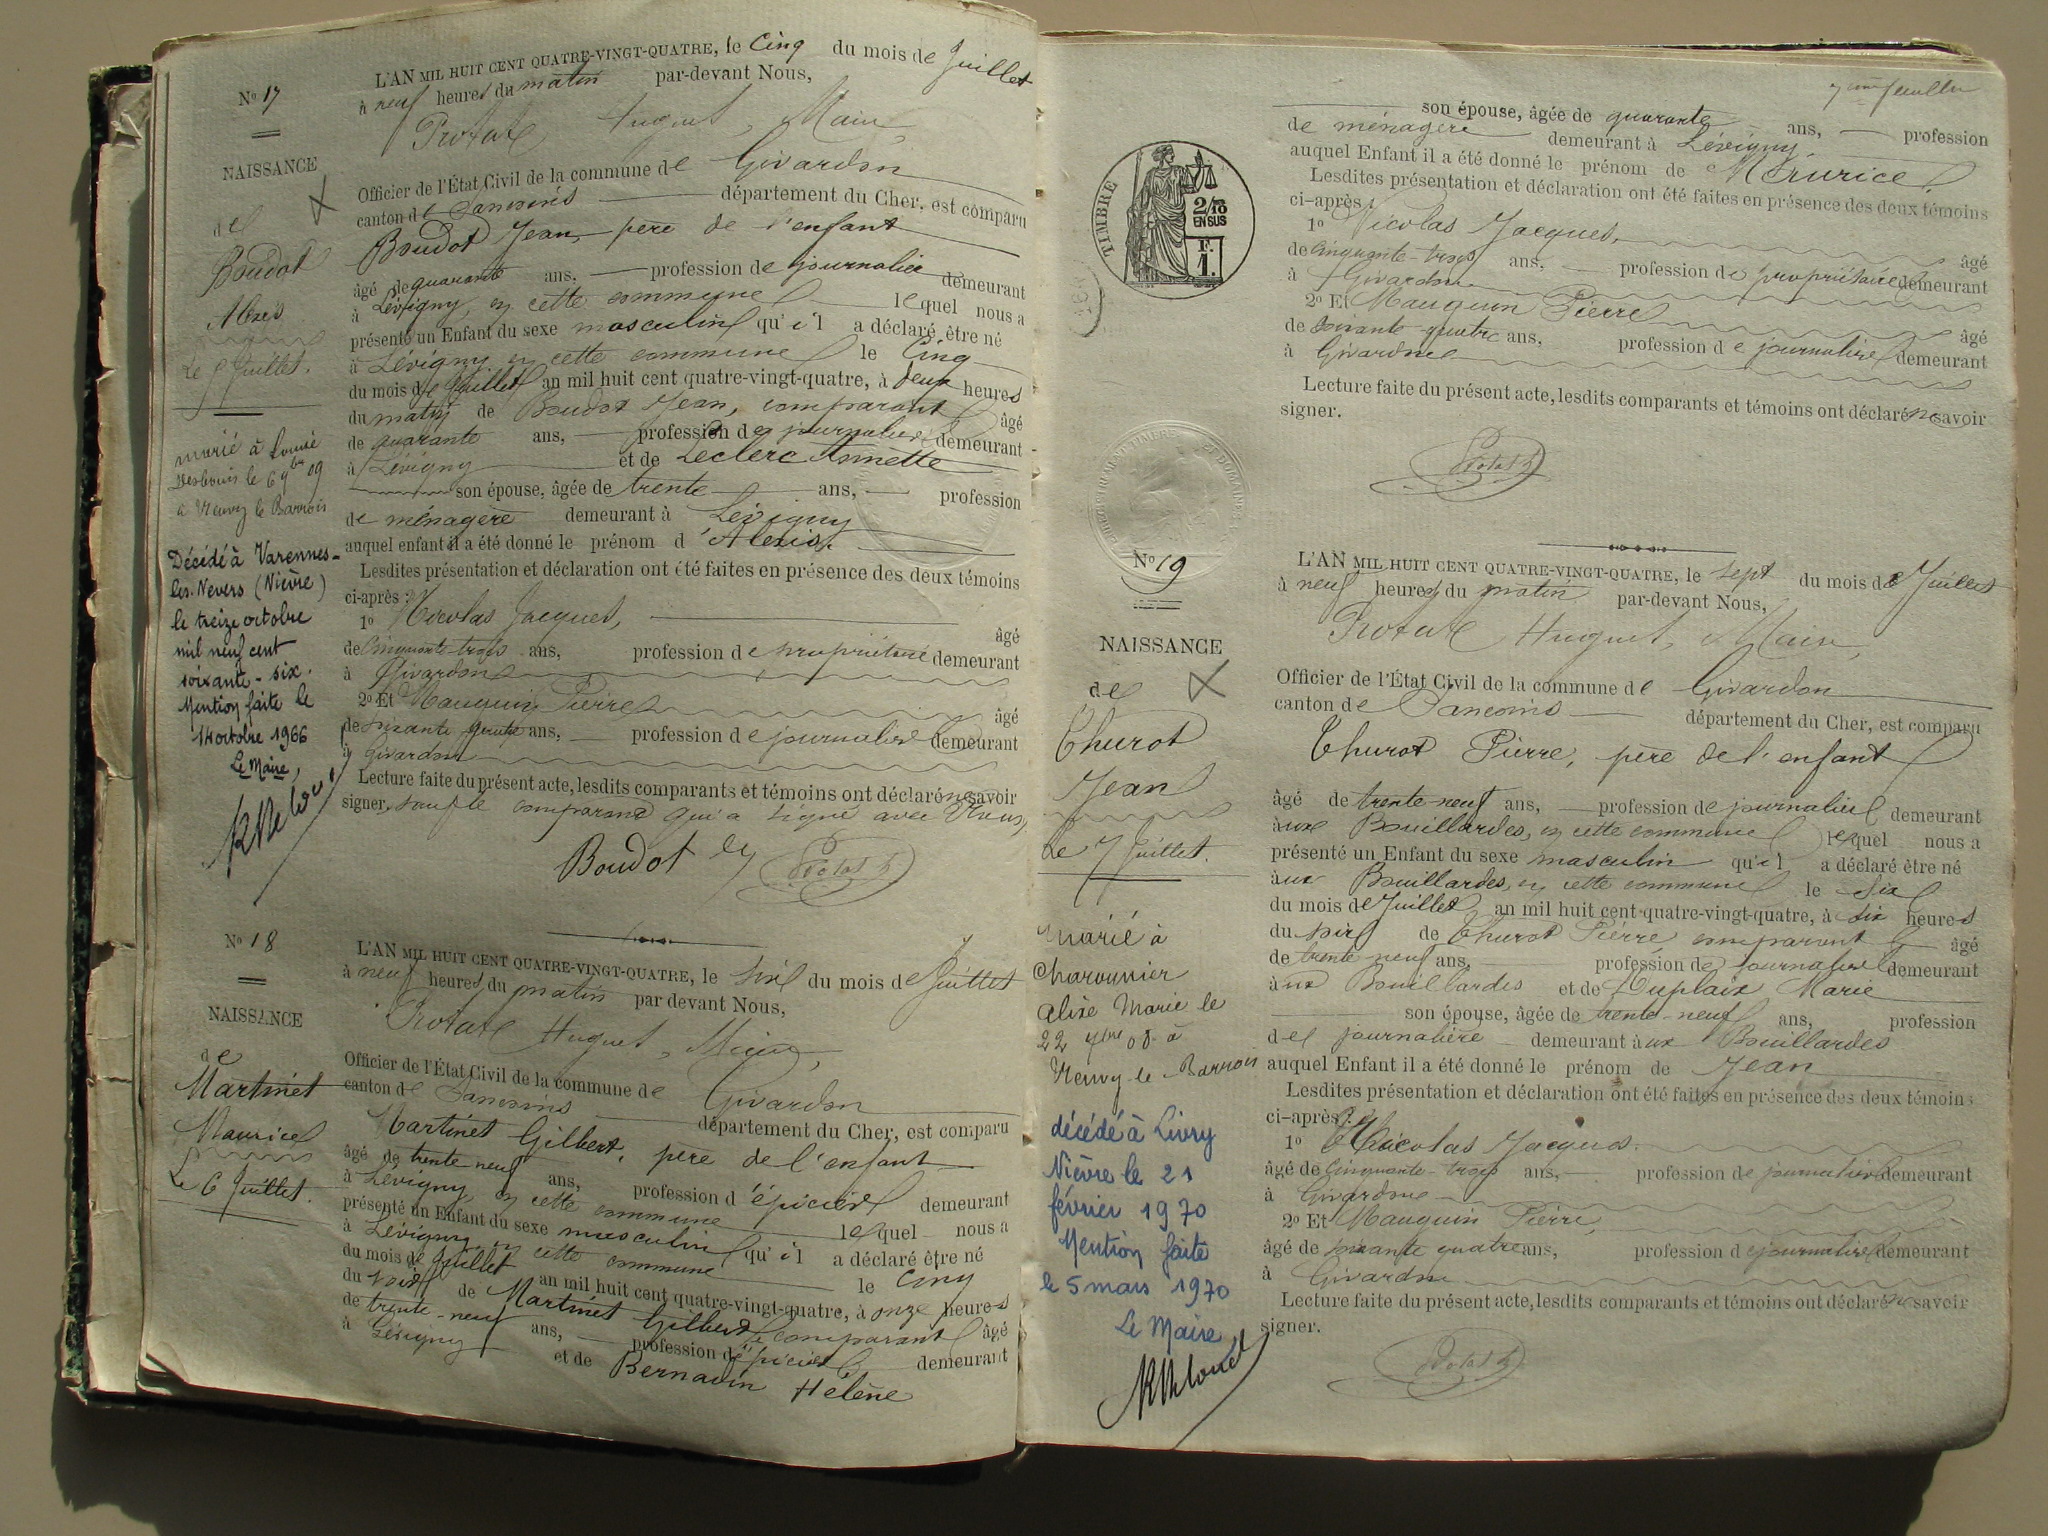 No 17
NAISSANCE
de
Boudot
Alexis
Le 5 Juillet.
marié à Louise
le 6 9bre 09
à Neuvy le Barrois
Décédé à Varennes-
les-Nevers (Nièvre)
le treize octobre
mil neuf cent
soixante-six.
Mention faite le
14 octobre 1966
Le Maire,
L'AN MIL HUIT CENT QUATRE-VINGT-QUATRE, le Cinq du mois de Juillet
à neuf heures du matin par-devant Nous,
Protat Huguet, Maire,
Officier de l'État Civil de la commune de Givardon
canton de Sancoins département du Cher, est comparu
Boudot Jean, père de l'enfant
âgé de quarante ans, profession de journalier demeurant
à Lévigny, en cette commune lequel nous a
présenté un Enfant du sexe masculin qu'il a déclaré être né
à Lévigny en cette commune le Cinq
du mois de Juillet an mil huit cent quatre-vingt-quatre, à deux heures
du matin de Boudot Jean, comparant âgé
de quarante ans, profession de journalier demeurant
à Lévigny et de Leclerc Annette
son épouse, âgée de trente ans, profession
de ménagère demeurant à Lévigny
auquel enfant il a été donné le prénom d'Alexis.
Lesdites présentation et déclaration ont été faites en présence des deux témoins
ci-après :
1o Nicolas Jacques, âgé
de Cinquante-trois ans, profession de propriétaire demeurant
à Givardon
2o Et Mauguin Pierre âgé
de soixante quatre ans, profession de journalier demeurant
à Givardon
Lecture faite du présent acte, lesdits comparants et témoins ont déclaré ne savoir
signer, sauf le comparant qui a signé avec Nous,
Boudot Protat h
No 18
NAISSANCE
de
Martinet
Maurice
Le 6 Juillet.
L'AN MIL HUIT CENT QUATRE-VINGT-QUATRE, le six du mois de Juillet
à neuf heures du matin par devant Nous,
Protat Huguet, Maire,
Officier de l'État Civil de la commune de Givardon
canton de Sancoins département du Cher, est comparu
Martinet Gilbert, père de l'enfant
âgé de trente neuf ans, profession d'épicier demeurant
à Lévigny, en cette commune lequel nous a
présenté un Enfant du sexe masculin qu'il a déclaré être né
à Lévigny en cette commune le Cinq
du mois de Juillet an mil huit cent quatre-vingt-quatre, à onze heures
du soir de Martinet Gilbert, comparant âgé
de trente-neuf ans, profession d'épicier demeurant
à Lévigny et de Bernadin Hélène
7ème feuillet
son épouse, âgée de quarante ans, profession
de ménagère demeurant à Lévigny
auquel Enfant il a été donné le prénom de Maurice.
Lesdites présentation et déclaration ont été faites en présence des deux témoins
ci-après :
1o Nicolas Jacques, âgé
de Cinquante-trois ans, profession de propriétaire demeurant
à Givardon
2o Et Mauguin Pierre âgé
de soixante quatre ans, profession de journalier demeurant
à Givardon
Lecture faite du présent acte, lesdits comparants et témoins ont déclaré ne savoir
signer.
Protat h
TIMBRE
2/10 EN SUS
F. 1.
No 19
NAISSANCE
de
Thurot
Jean
Le 7 Juillet.
marié à
Charounier
Alixe Marie le
22 9bre 08 à
Neuvy-le-Barrois
décédé à Livry
Nièvre le 21
février 1970
Mention faite
le 5 mars 1970
Le Maire
L'AN MIL HUIT CENT QUATRE-VINGT-QUATRE, le sept du mois de Juillet
à neuf heures du matin par-devant Nous,
Protat Huguet, Maire,
Officier de l'État Civil de la commune de Givardon
canton de Sancoins département du Cher, est comparu
Thurot Pierre, père de l'enfant
âgé de trente neuf ans, profession de journalier demeurant
aux Bouillardes, en cette commune lequel nous a
présenté un Enfant du sexe masculin qu'il a déclaré être né
aux Bouillardes, en cette commune le Six
du mois de Juillet an mil huit cent quatre-vingt-quatre, à six heures
du soir de Thurot Pierre comparant âgé
de trente neuf ans, profession de journalier demeurant
aux Bouillardes et de Duplaix Marie
son épouse, âgée de trente-neuf ans, profession
de journalière demeurant aux Bouillardes
auquel Enfant il a été donné le prénom de Jean
Lesdites présentation et déclaration ont été faites en présence des deux témoins
ci-après :
1o Nicolas Jacques.
âgé de Cinquante-trois ans, profession de journalier demeurant
à Givardon
2o Et Mauguin Pierre,
âgé de soixante quatre ans, profession de journalier demeurant
à Givardon
Lecture faite du présent acte, lesdits comparants et témoins ont déclaré ne savoir
signer.
Protat h